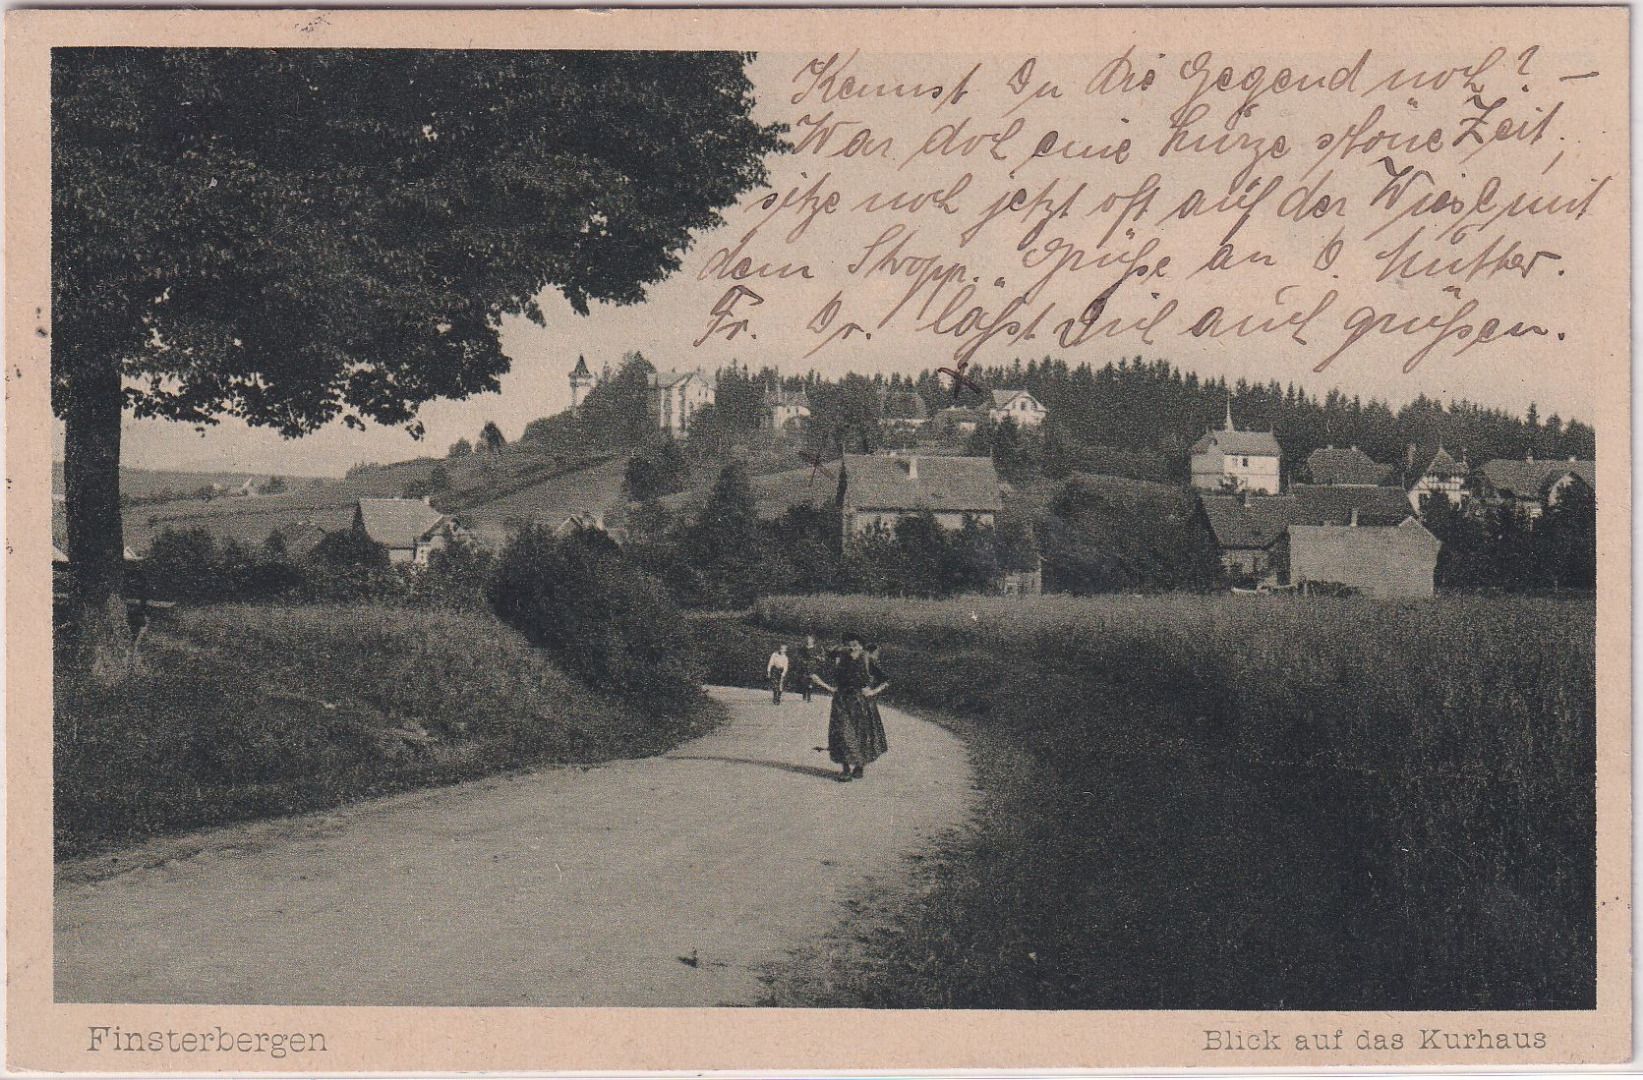 Kennst Du die Gegend noch? —
War doch eine kurze schöne Zeit,
sitze noch jetzt oft auf der Wiese mit
dem Stropp. Grüße an D. Mutter.
Fr. Dr. läßt Dich auch grüßen.
Finsterbergen
Blick auf das Kurhaus